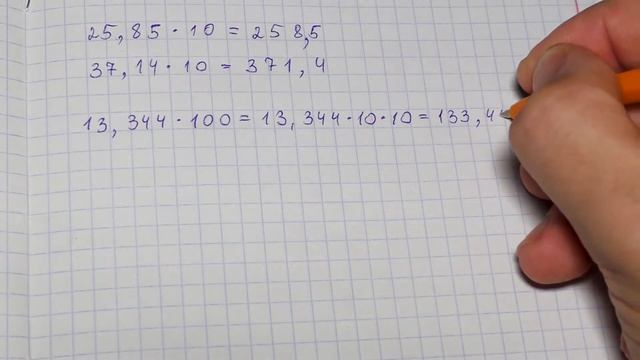 25,85 · 10 = 258,5
37,14 · 10 = 371,4
13,344 · 100 = 13,344 · 10 · 10 = 133,4